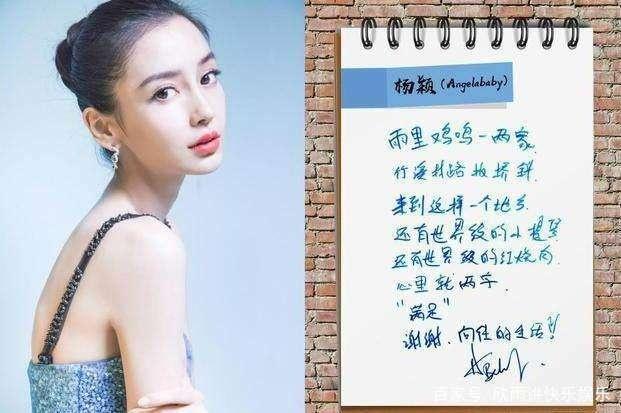 杨颖(Angelababy)
雨里鸡鸣一两家
竹溪村路板桥斜
来到这样一个地方
还有世界级的小提琴
还有世界级的红烧肉
心里就两字
"满足"
谢谢、向往的生活!
百家号/欣雨谁快乐娱乐